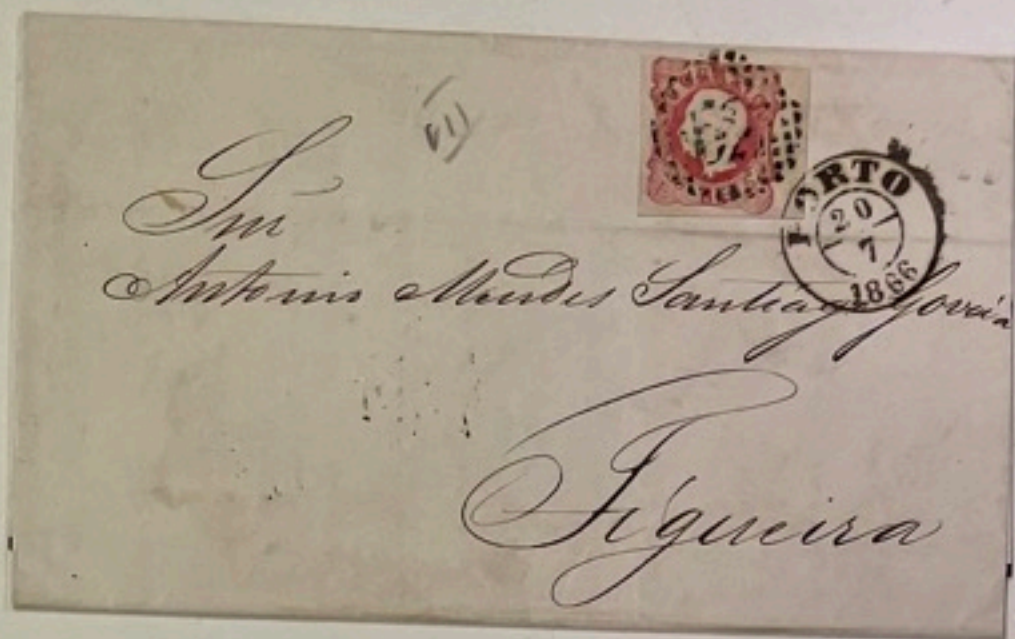 PORTO
20
7
1866
Snr
Antonio Mendes Santiago Govêa
Figueira